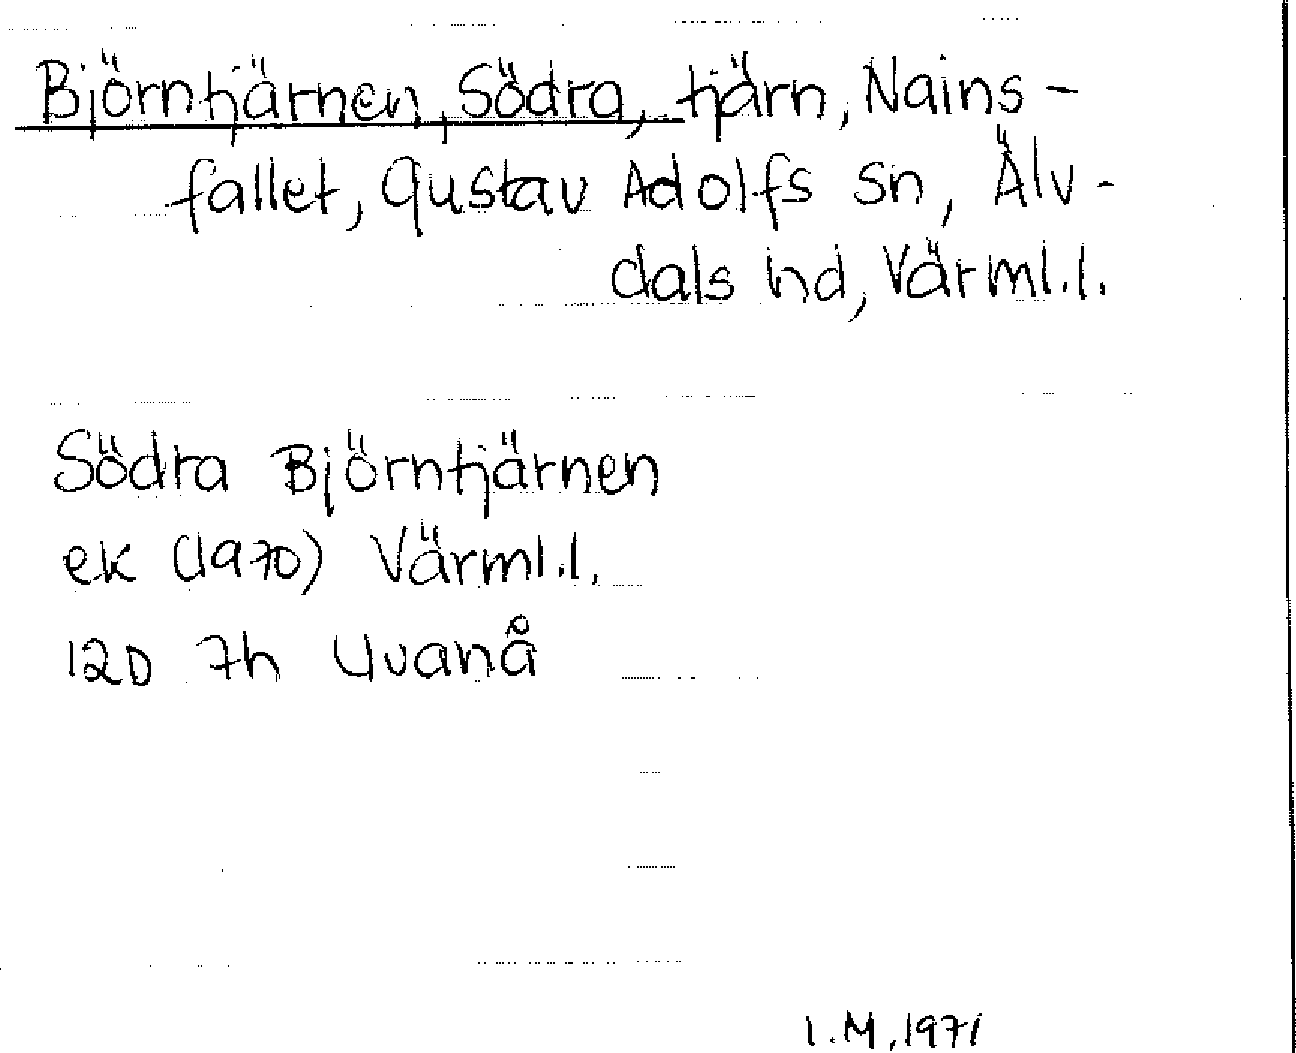 Björntjärnen, Södra, tjärn, Nains-
fallet, Gustav Adolfs sn, Älv-
dals hd, Värml.l.
Södra Björntjärnen
ek (1970) Värml.l.
12D 7h Uvanå
I.M, 1971